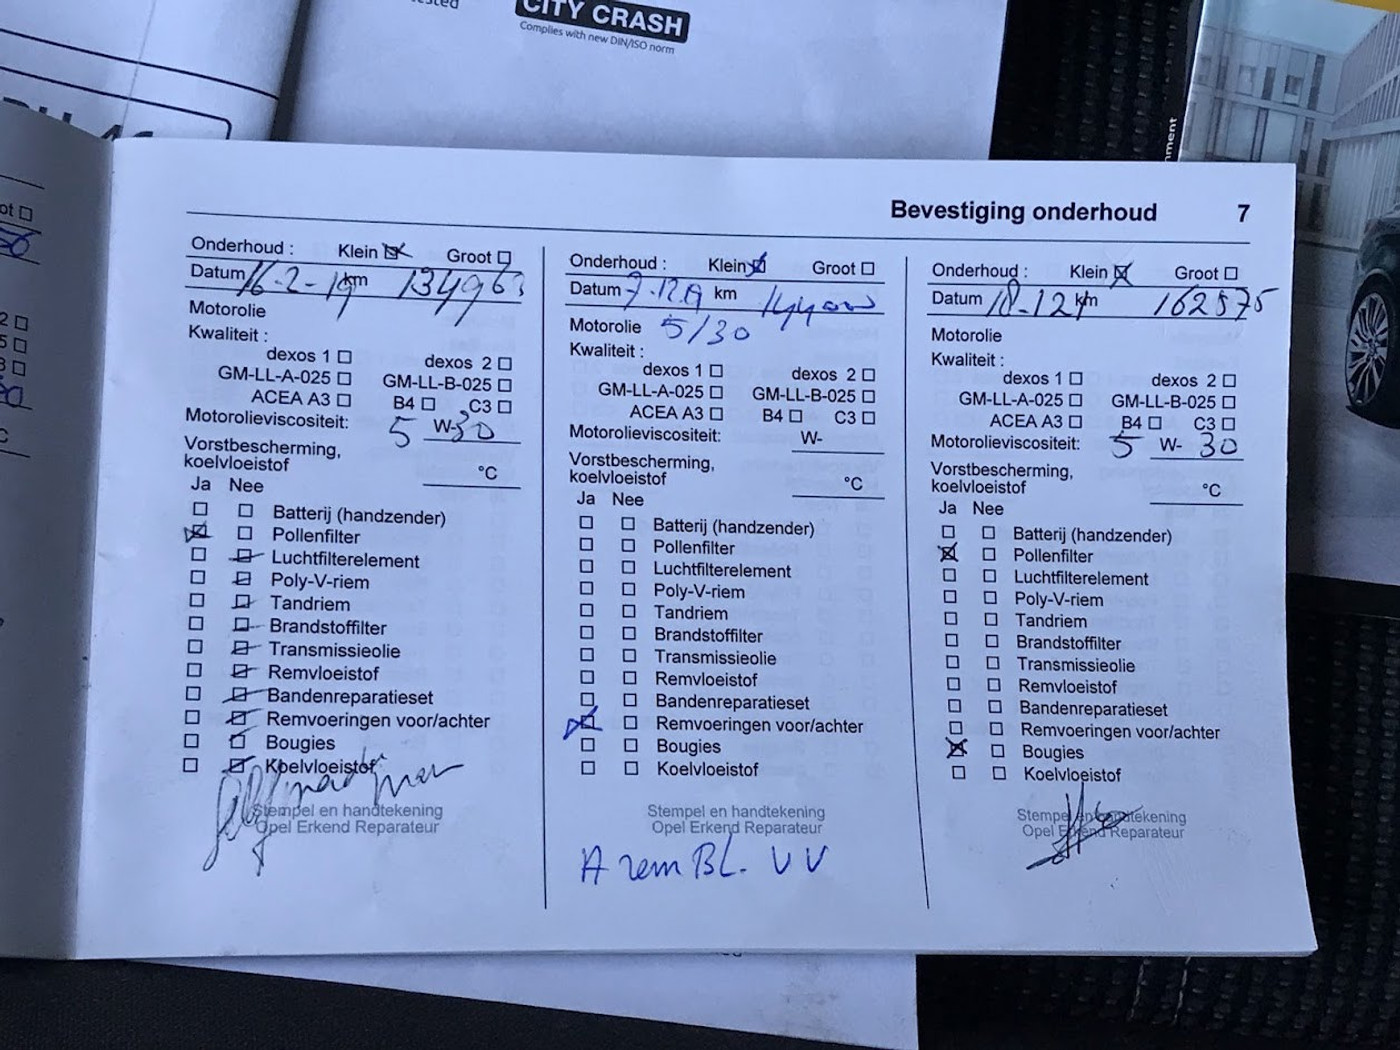 CITY CRASH
Complies with new DIN/ISO norm
Bevestiging onderhoud 7
Onderhoud : Klein Groot
Datum 16-2-19 km 134963
Motorolie
Kwaliteit :
dexos 1 dexos 2
GM-LL-A-025 GM-LL-B-025
ACEA A3 B4 C3
Motorolieviscositeit: 5 W-30
Vorstbescherming,
koelvloeistof °C
Ja Nee
Batterij (handzender)
Pollenfilter
Luchtfilterelement
Poly-V-riem
Tandriem
Brandstoffilter
Transmissieolie
Remvloeistof
Bandenreparatieset
Remvoeringen voor/achter
Bougies
Koelvloeistof
Stempel en handtekening
Opel Erkend Reparateur
Onderhoud : Klein Groot
Datum 7-12-19 km 144000
Motorolie 5/30
Kwaliteit :
dexos 1 dexos 2
GM-LL-A-025 GM-LL-B-025
ACEA A3 B4 C3
Motorolieviscositeit: W-
Vorstbescherming,
koelvloeistof °C
Ja Nee
Batterij (handzender)
Pollenfilter
Luchtfilterelement
Poly-V-riem
Tandriem
Brandstoffilter
Transmissieolie
Remvloeistof
Bandenreparatieset
Remvoeringen voor/achter
Bougies
Koelvloeistof
Stempel en handtekening
Opel Erkend Reparateur
A rem BL. VV
Onderhoud : Klein Groot
Datum km 162575
Motorolie
Kwaliteit :
dexos 1 dexos 2
GM-LL-A-025 GM-LL-B-025
ACEA A3 B4 C3
Motorolieviscositeit: 5 W- 30
Vorstbescherming,
koelvloeistof °C
Ja Nee
Batterij (handzender)
Pollenfilter
Luchtfilterelement
Poly-V-riem
Tandriem
Brandstoffilter
Transmissieolie
Remvloeistof
Bandenreparatieset
Remvoeringen voor/achter
Bougies
Koelvloeistof
Stempel en handtekening
Opel Erkend Reparateur